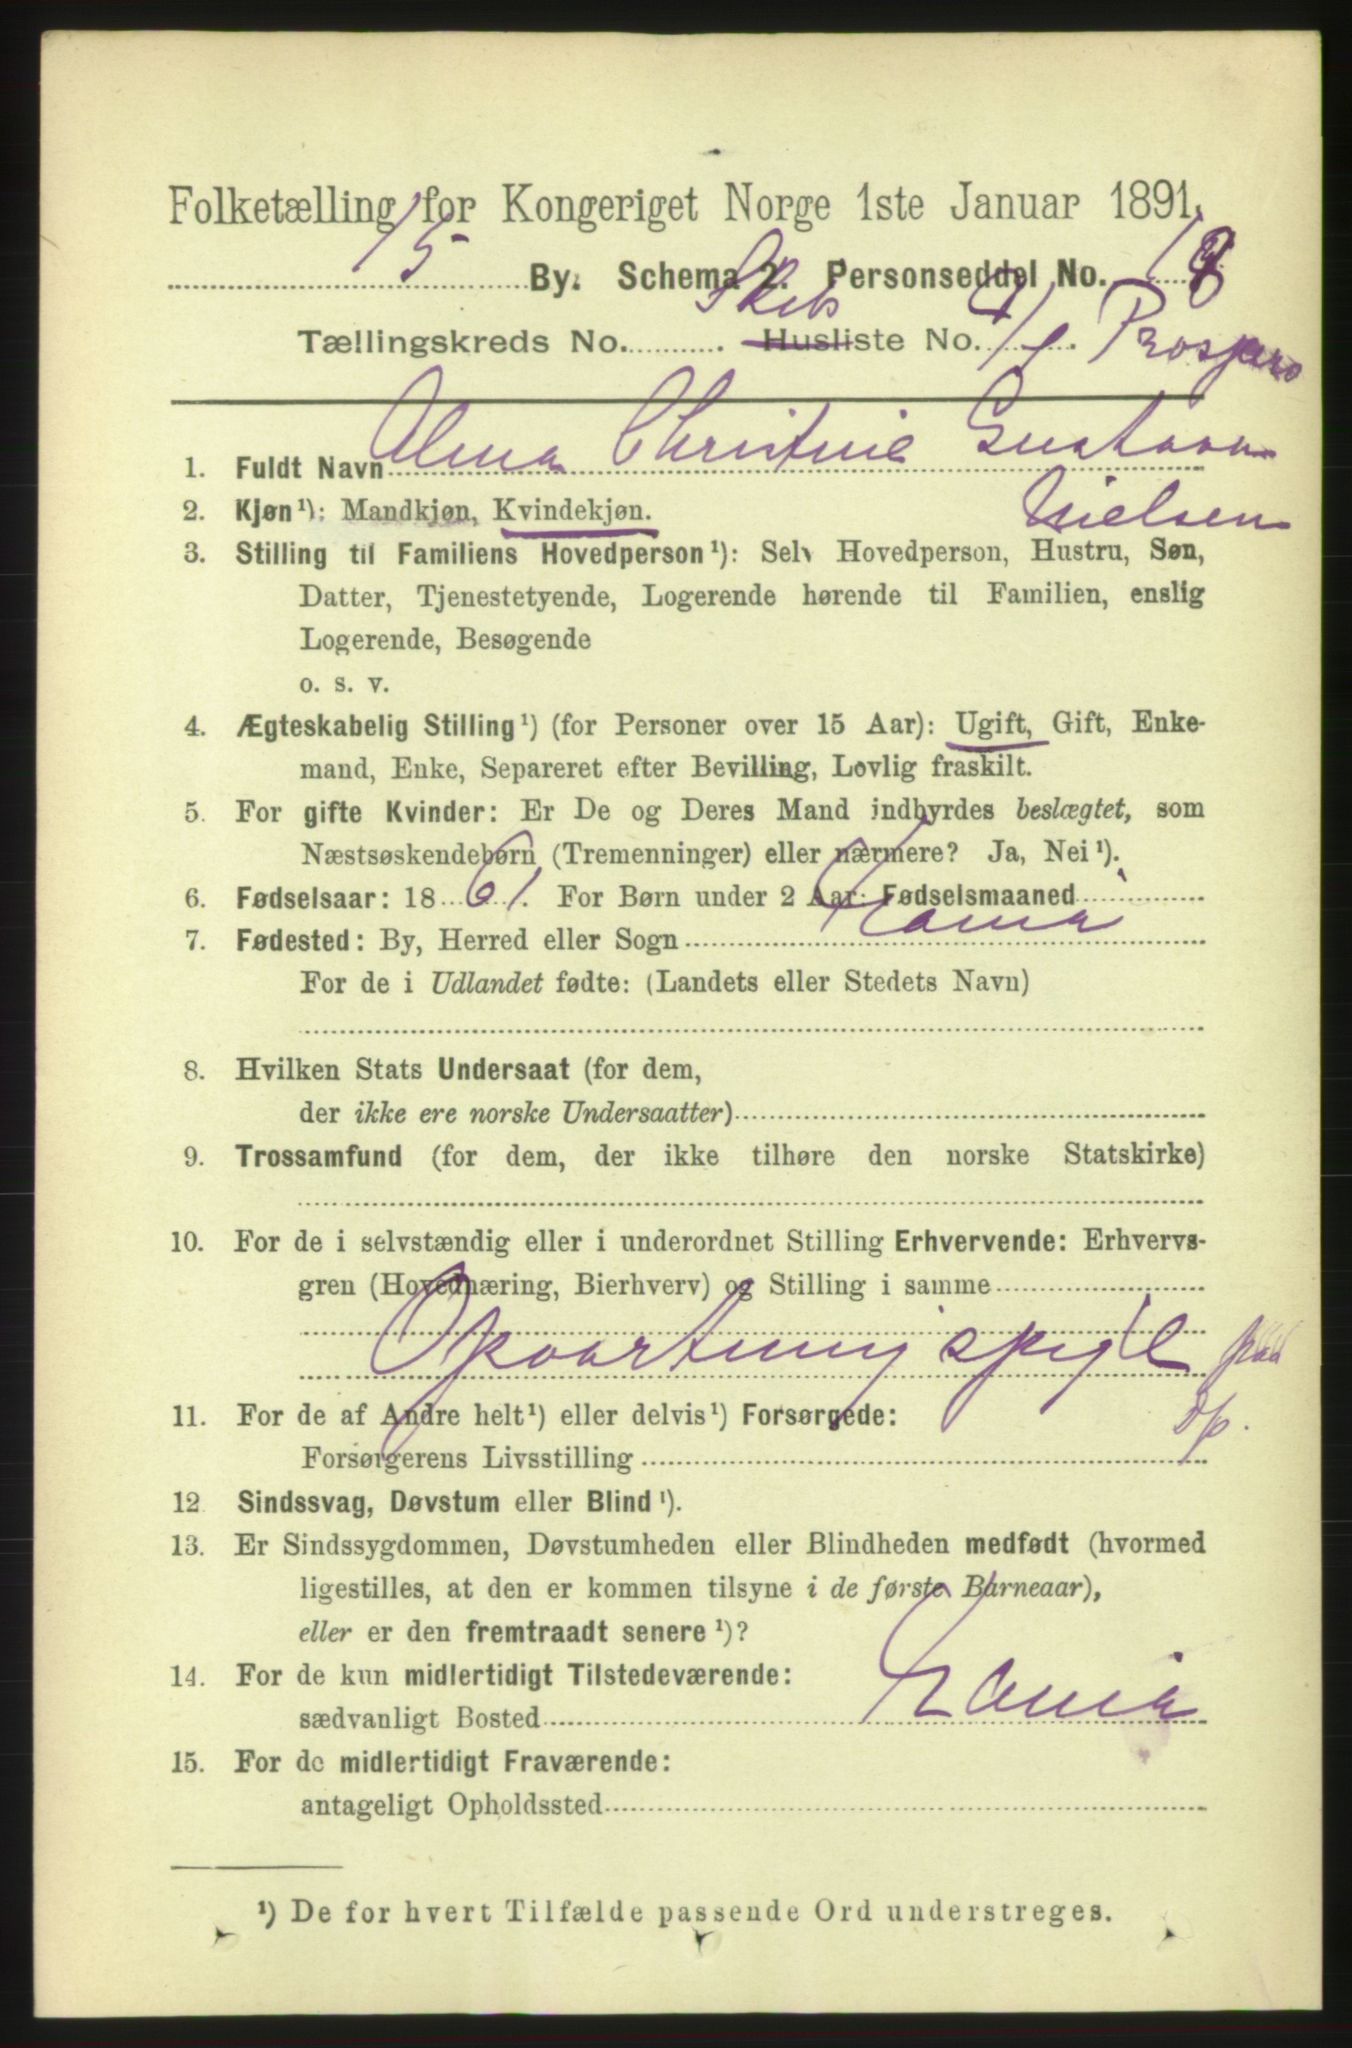 Folketælling for Kongeriget Norge 1ste Januar 1891.
15 By. Schema 2. Personseddel No. 18
Tællingskreds No. Skibs Husliste No. Prospero
1. Fuldt Navn Alma Christine Gustava
Nielsen
2. Kjøn ¹): Mandkjøn, Kvindekjøn.
3. Stilling til Familiens Hovedperson ¹): Selv Hovedperson, Hustru, Søn,
Datter, Tjenestetyende, Logerende hørende til Familien, enslig
Logerende, Besøgende
o. s. v.
4. Ægteskabelig Stilling ¹) (for Personer over 15 Aar): Ugift, Gift, Enke-
mand, Enke, Separeret efter Bevilling, Lovlig fraskilt.
5. For gifte Kvinder: Er De og Deres Mand indbyrdes beslægtet, som
Næstsøskendebørn (Tremenninger) eller nærmere? Ja, Nei ¹).
6. Fødselsaar: 1861. For Børn under 2 Aar: Fødselsmaaned
7. Fødested: By, Herred eller Sogn
For de i Udlandet fødte: (Landets eller Stedets Navn)
8. Hvilken Stats Undersaat (for dem,
der ikke ere norske Undersaatter)
9. Trossamfund (for dem, der ikke tilhøre den norske Statskirke)
10. For de i selvstændig eller i underordnet Stilling Erhvervende: Erhvervs-
gren (Hovednæring, Bierhverv) og Stilling i samme
Opvartningspige
11. For de af Andre helt ¹) eller delvis ¹) Forsørgede:
Forsørgerens Livsstilling
12. Sindssvag, Døvstum eller Blind ¹).
13. Er Sindssygdommen, Døvstumheden eller Blindheden medfødt (hvormed
ligestilles, at den er kommen tilsyne i de første Barneaar),
eller er den fremtraadt senere ¹)?
14. For de kun midlertidigt Tilstedeværende:
sædvanligt Bosted
15. For de midlertidigt Fraværende:
antageligt Opholdssted
¹) De for hvert Tilfælde passende Ord understreges.